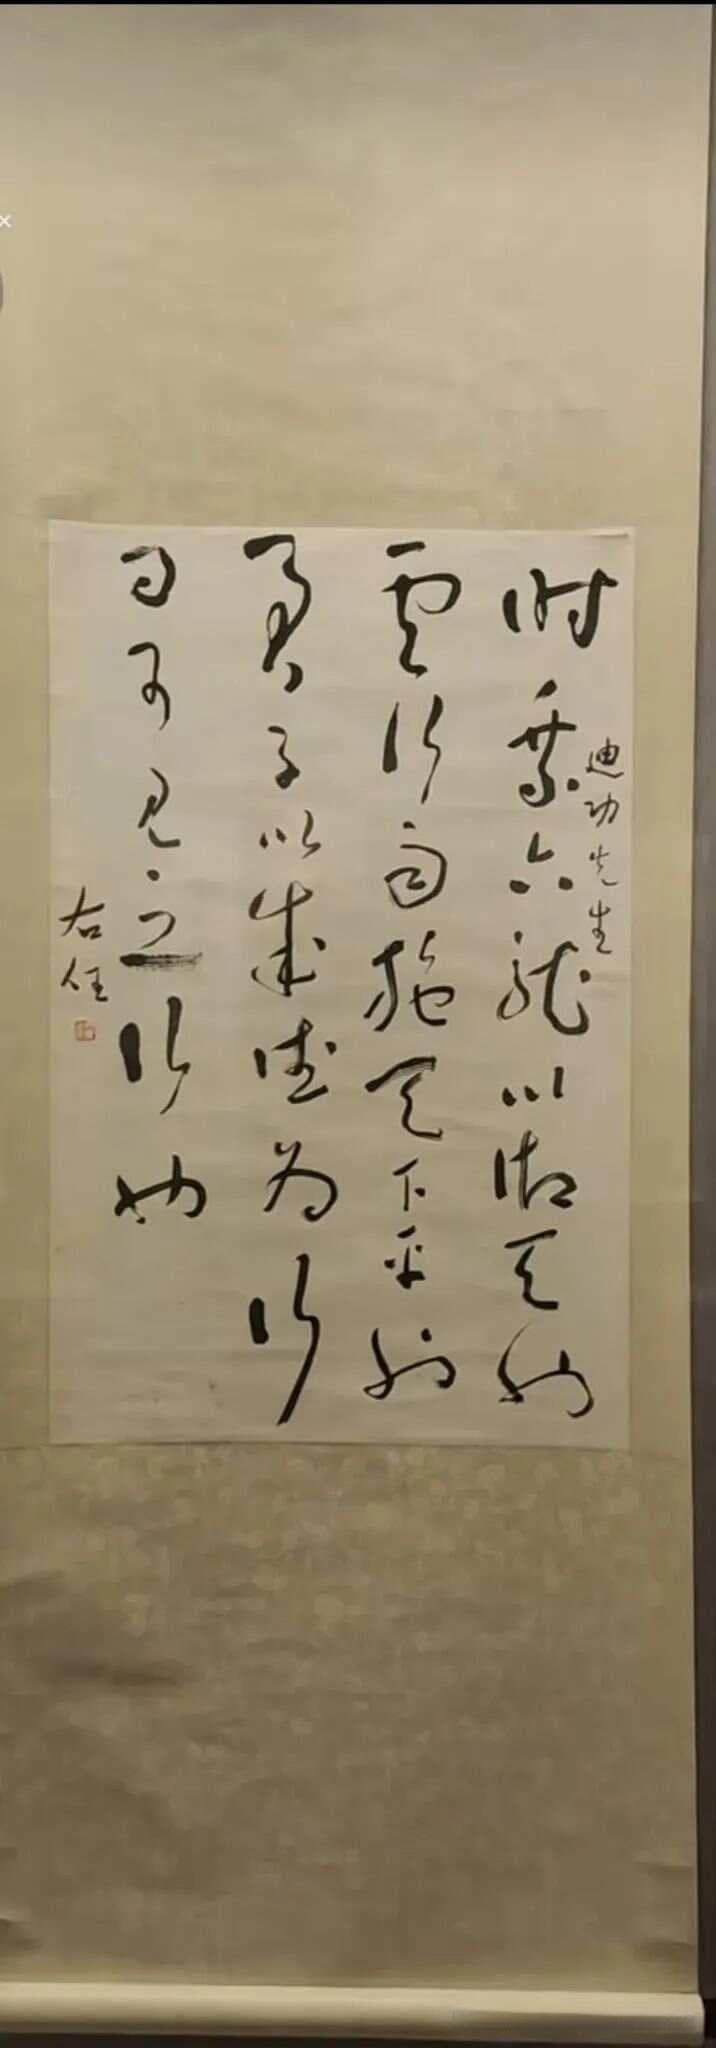 迪功先生
時乘六龍以御天也
雲行雨施天下平也
君子以成德為行
日可見之行也
右任